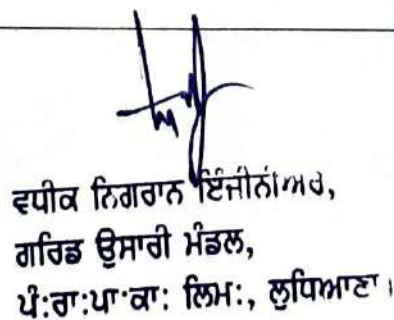 ਵਧੀਕ ਨਿਗਰਾਨ ਇੰਜੀਨੀਅਰ,
ਗਰਿਡ ਉਸਾਰੀ ਮੰਡਲ,
ਪੰ:ਰਾ:ਪਾ:ਕਾ: ਲਿਮ:, ਲੁਧਿਆਣਾ।